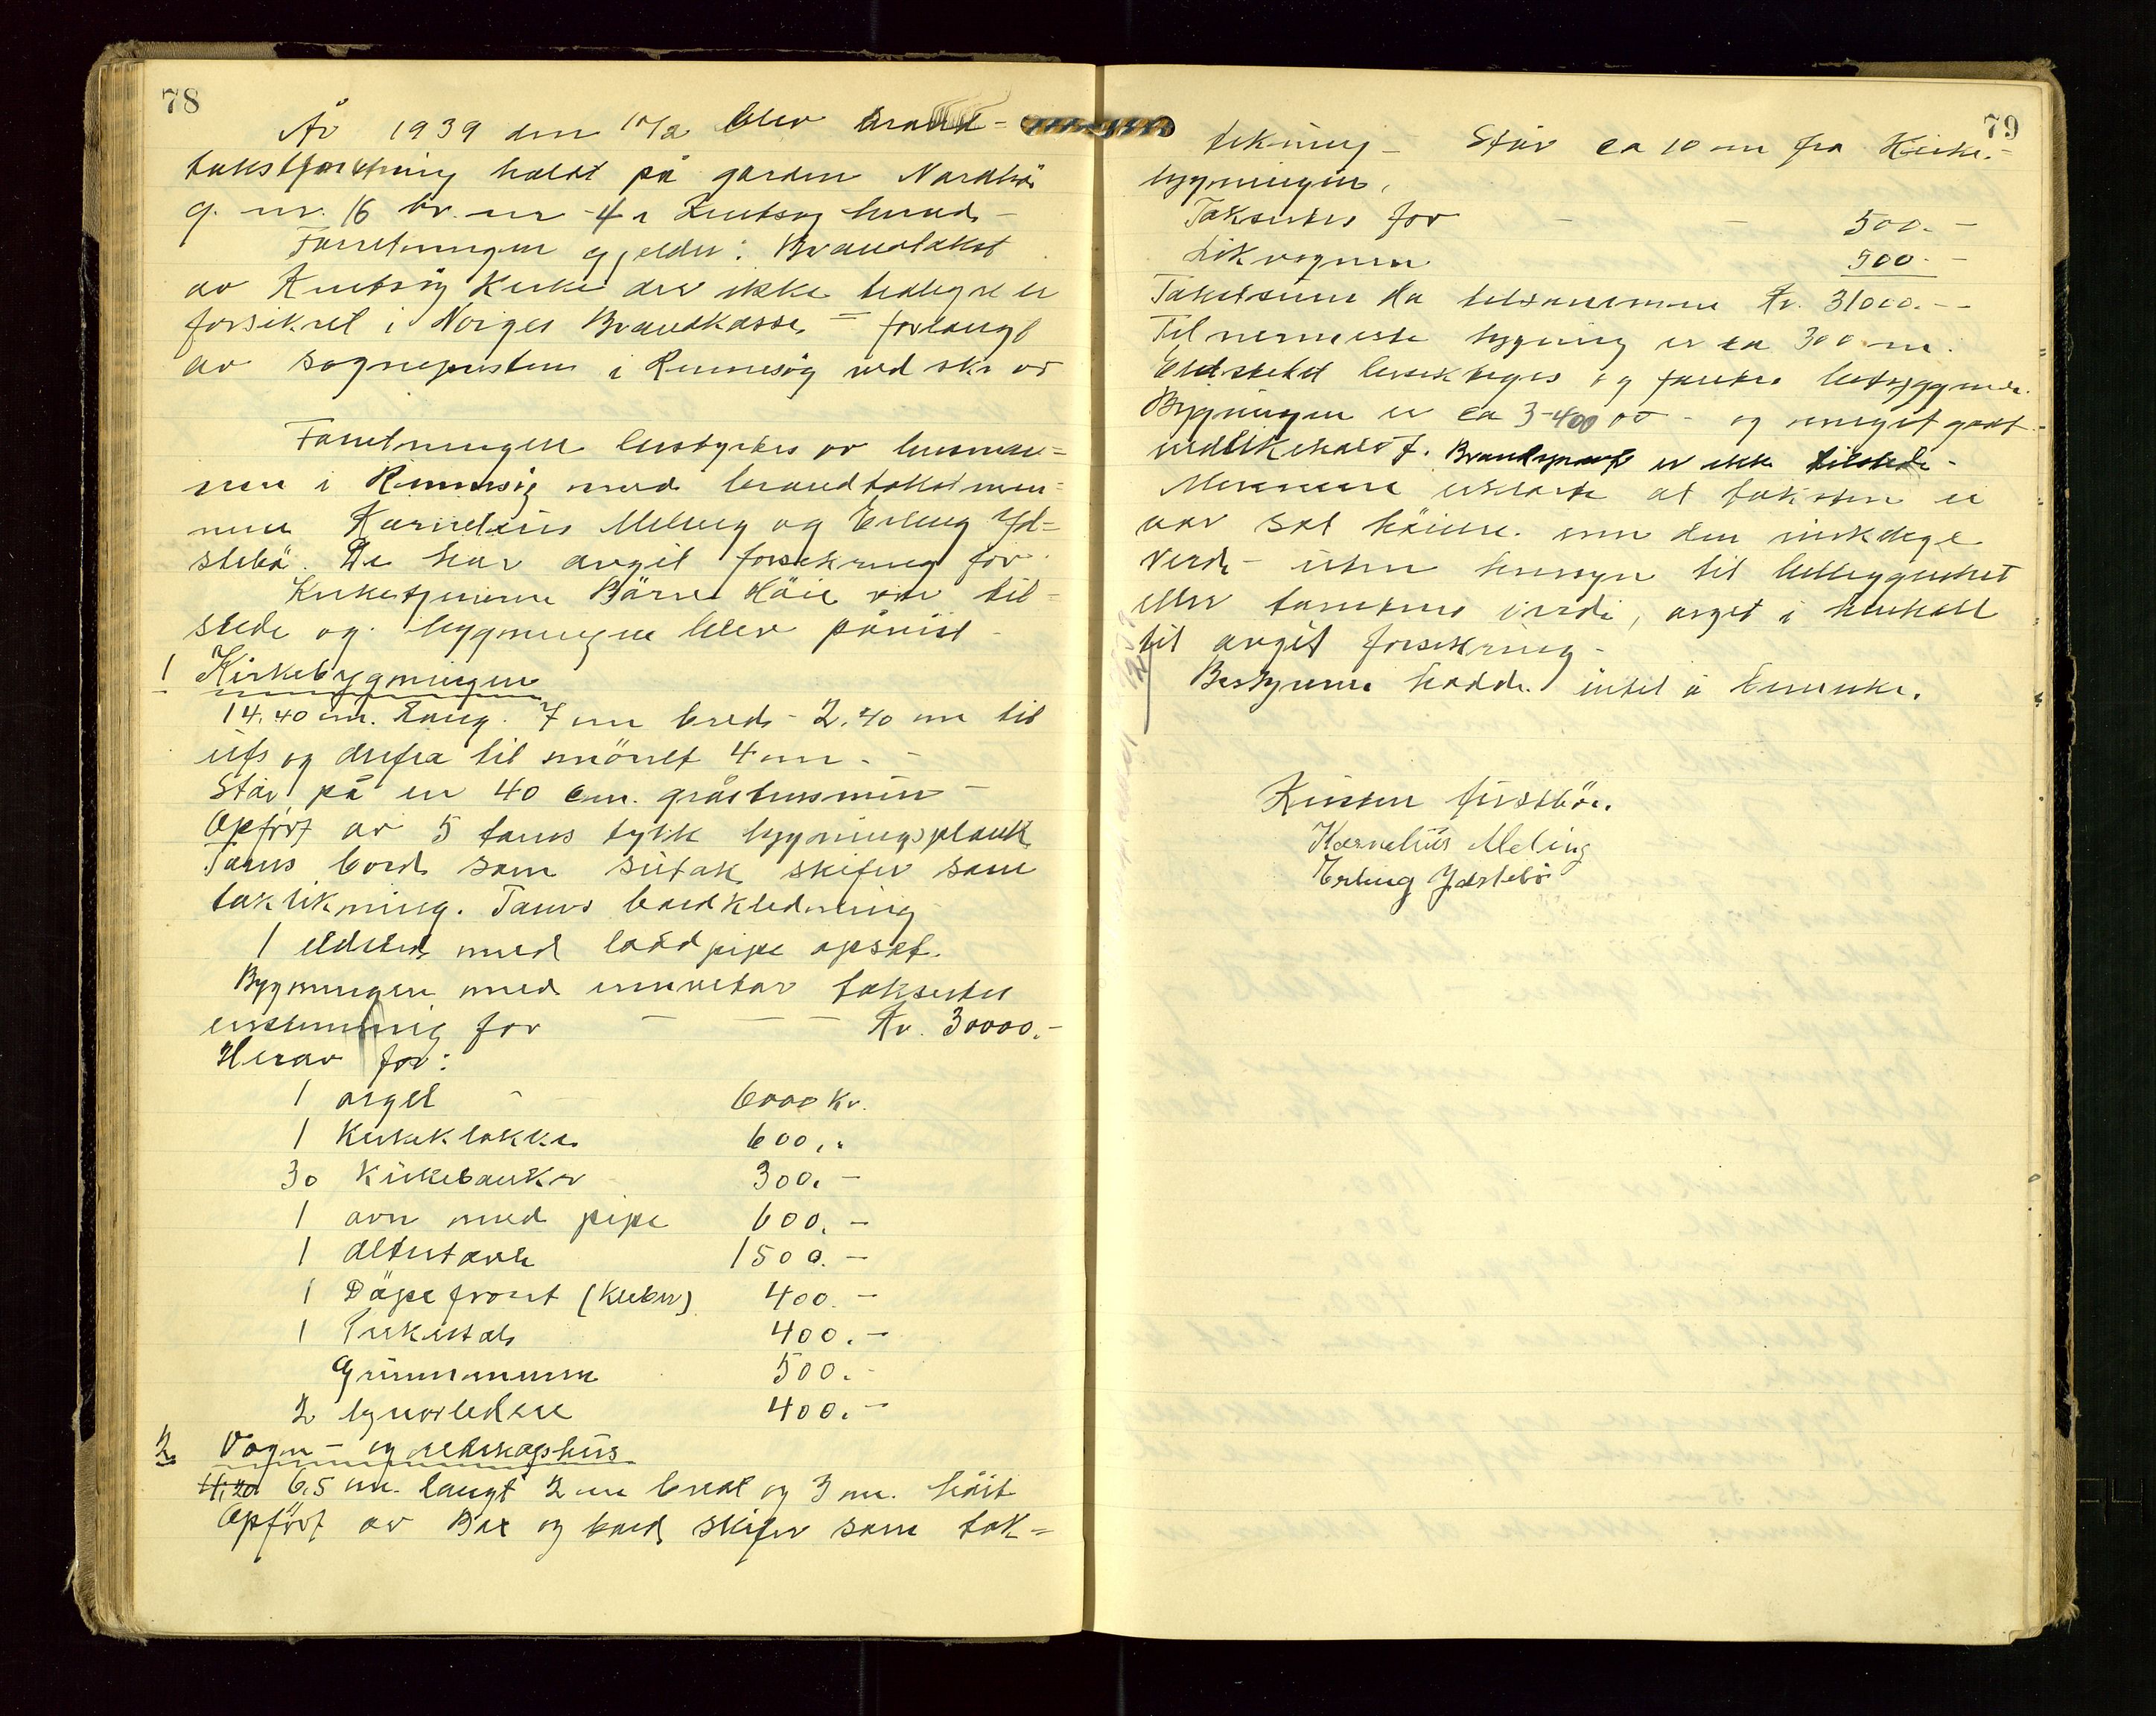 78
År 1939 den 10/2 blev brand=
takstforretning haldt på garden Nordbö
g. nr. 16 br. nr 4 i Kvitsöy herred -
Forretningen gjelder: Brandtakst
av Kvitsöy Kirke der ikke tidligere er
forsikret i Norges Brandkasse = forlangt
av sogneprestene i Rennesöy ved skr av
Forretningen bestyrtes av lensman=
nen i Rennesöy med brandtakstmen=
nene Kornelius Meling og Erling Yd=
stebö. De har avgit forsikring før
Kirketjenerne Bärre Höie var til=
stede og bygningene blev påvist -
1 Kirkebygningen
14,40 m. lang. 7 m bred - 2,40 m til
ufs og derfra til mönet 4 m. -
Står på en 40 cm. gråstensmur -
Opfört av 5 toms tykk bygningsplank
Toms bord som sutak skifer som
taktekning. Toms bordkledning
1 ildsted med lodd pipe opsat.
Bygningen med inventar takseredes
enstemmig for - - - Kr. 30000.-
Herav for:
1 orgel - 6000 Kr.
1 Kirkeklokke 600,-
30 Kirkebenker 300.-
1 ovn med pipe 600.-
1 Altertavle 1500.-
1 Döpefront (Kleber) 400.-
1 Prekestol 400.-
Grunnmuren 500.-
2 lynavledere 400.-
2. Vogn- og redskapshus
6,5 m. langt 2 m bredt og 3 m. höit
Opfört av og bord skifer som tak=
79
tekning - Står ca 10 m fra Kirke-
bygningen.
Takseredes for - - 500.-
Likvognen 500.-
Takstsum Ha tilsammen Kr. 31000.--
Til nermeste bygning er ca 300 m.
Ildstedet besiktiges og fantes betryggende.
Bygningen er ca 3-400 og meget godt
vedlikeholdt. Brandsprøit er ikke tilstede -
Mennene erklærte at taksten ei
var sat höiere enn den virkelige
verdi - uten hensyn til beliggenhet
eller tomtens verdi, avgit i henhold
til avgit forsikring -
Bestyreren hadde intet å bemerke.
Kornelius Meling
Erling Ydstebö